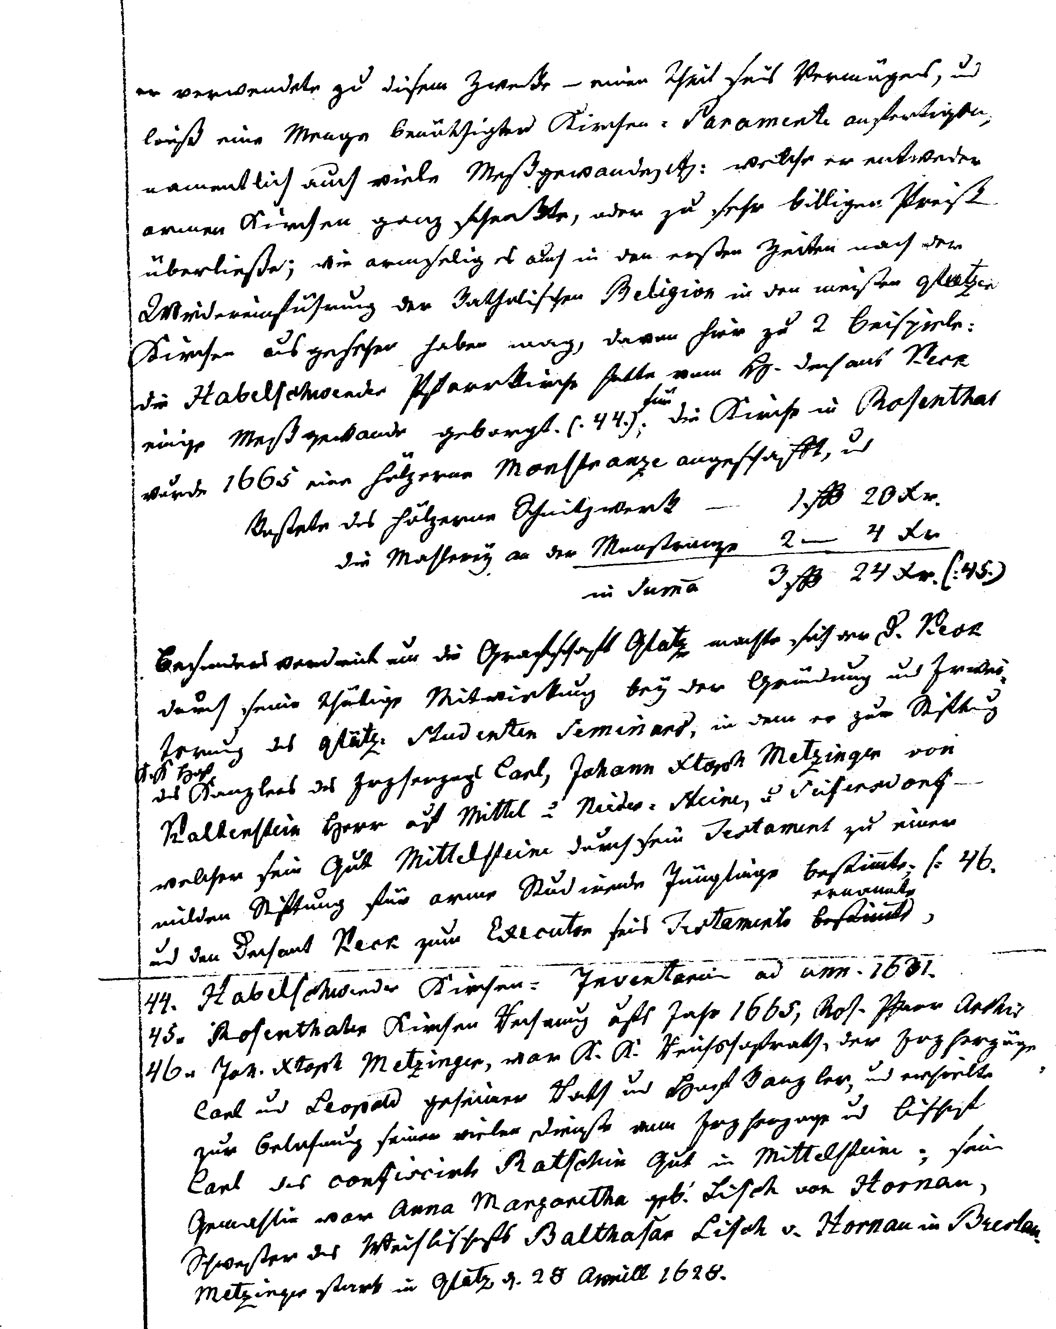 er verwendete zu diesem Zwecke – einen Theil seines Vermögens, und
ließ eine Menge benöthigten Kirchen-Paramente anfertigen,
namentlich auch viele Meßgewande, welche er entweder
armen Kirchen ganz schenkte, oder zu sehr billigen Preiß
überließe; wie armselig es auch in den ersten Zeiten nach der
Widereinführung der katholischen Religion in den meisten glatzer
Kirchen ausgesehen haben mag, davon hier zu 2 Beispiele:
die Habelschwerder Pfarrkirche hatte vom H. Dechant Keck
einige Meßgewande geborgt. (:44.); für die Kirche in Rosenthal
wurde 1665 eine hölzerne Monstranze angeschafft, und
kostete das hölzerne Schnitzwerk — 1 f 20 Xr.
die Mahlerey an der Monstranze 2 — 4 Xr
in Suma 3 f 24 Xr. (:45.)
Besonders verdient um die Grafschaft Glatz machte sich der D. Keck
durch seine thätige Mitwirkung bey der Gründung und Erwei-
terung des glätz. Studenten Seminars, in dem er zur Stiftung
des K. K. Hof Kanzlers des Erzherzogs Carl, Johann Xtoph Metzinger von
Kaltenstein Herr auf Mittel u Nieder-Steine, u
welcher sein Gut Mittelsteine durch sein Testament zu einer
milden Stiftung für arme Studirende Jünglinge bestimte, (: 46.
und den Dechant Keck zum Executor seines Testaments ernannte bestimte,
44. Habelschwerder Kirchen-Inventarium ad ann. 1631.
45. Rosenthaler Kirchen Rechnung aufs Jahr 1665, Ros. Pfarr Archiv
46. Joh. Xtoph Metzinger, war K. K. Reichshofrath, der Erzherzöge
Carl und Leopold geheimer Rath und Hofkanzler, und erhielte
zur Belohnung seiner vielen Dienste vom Erzherzoge und Bischof
Carl das confiscirte Ratschin Gut in Mittelsteine; seine
Gemahlin war Anna Margaretha geb. Lisch von Hornau,
Schwester des Weihbischofs Balthasar Lisch v. Hornau in Breslau.
Metzinger starb in Glatz, d. 28 Aprill 1628.